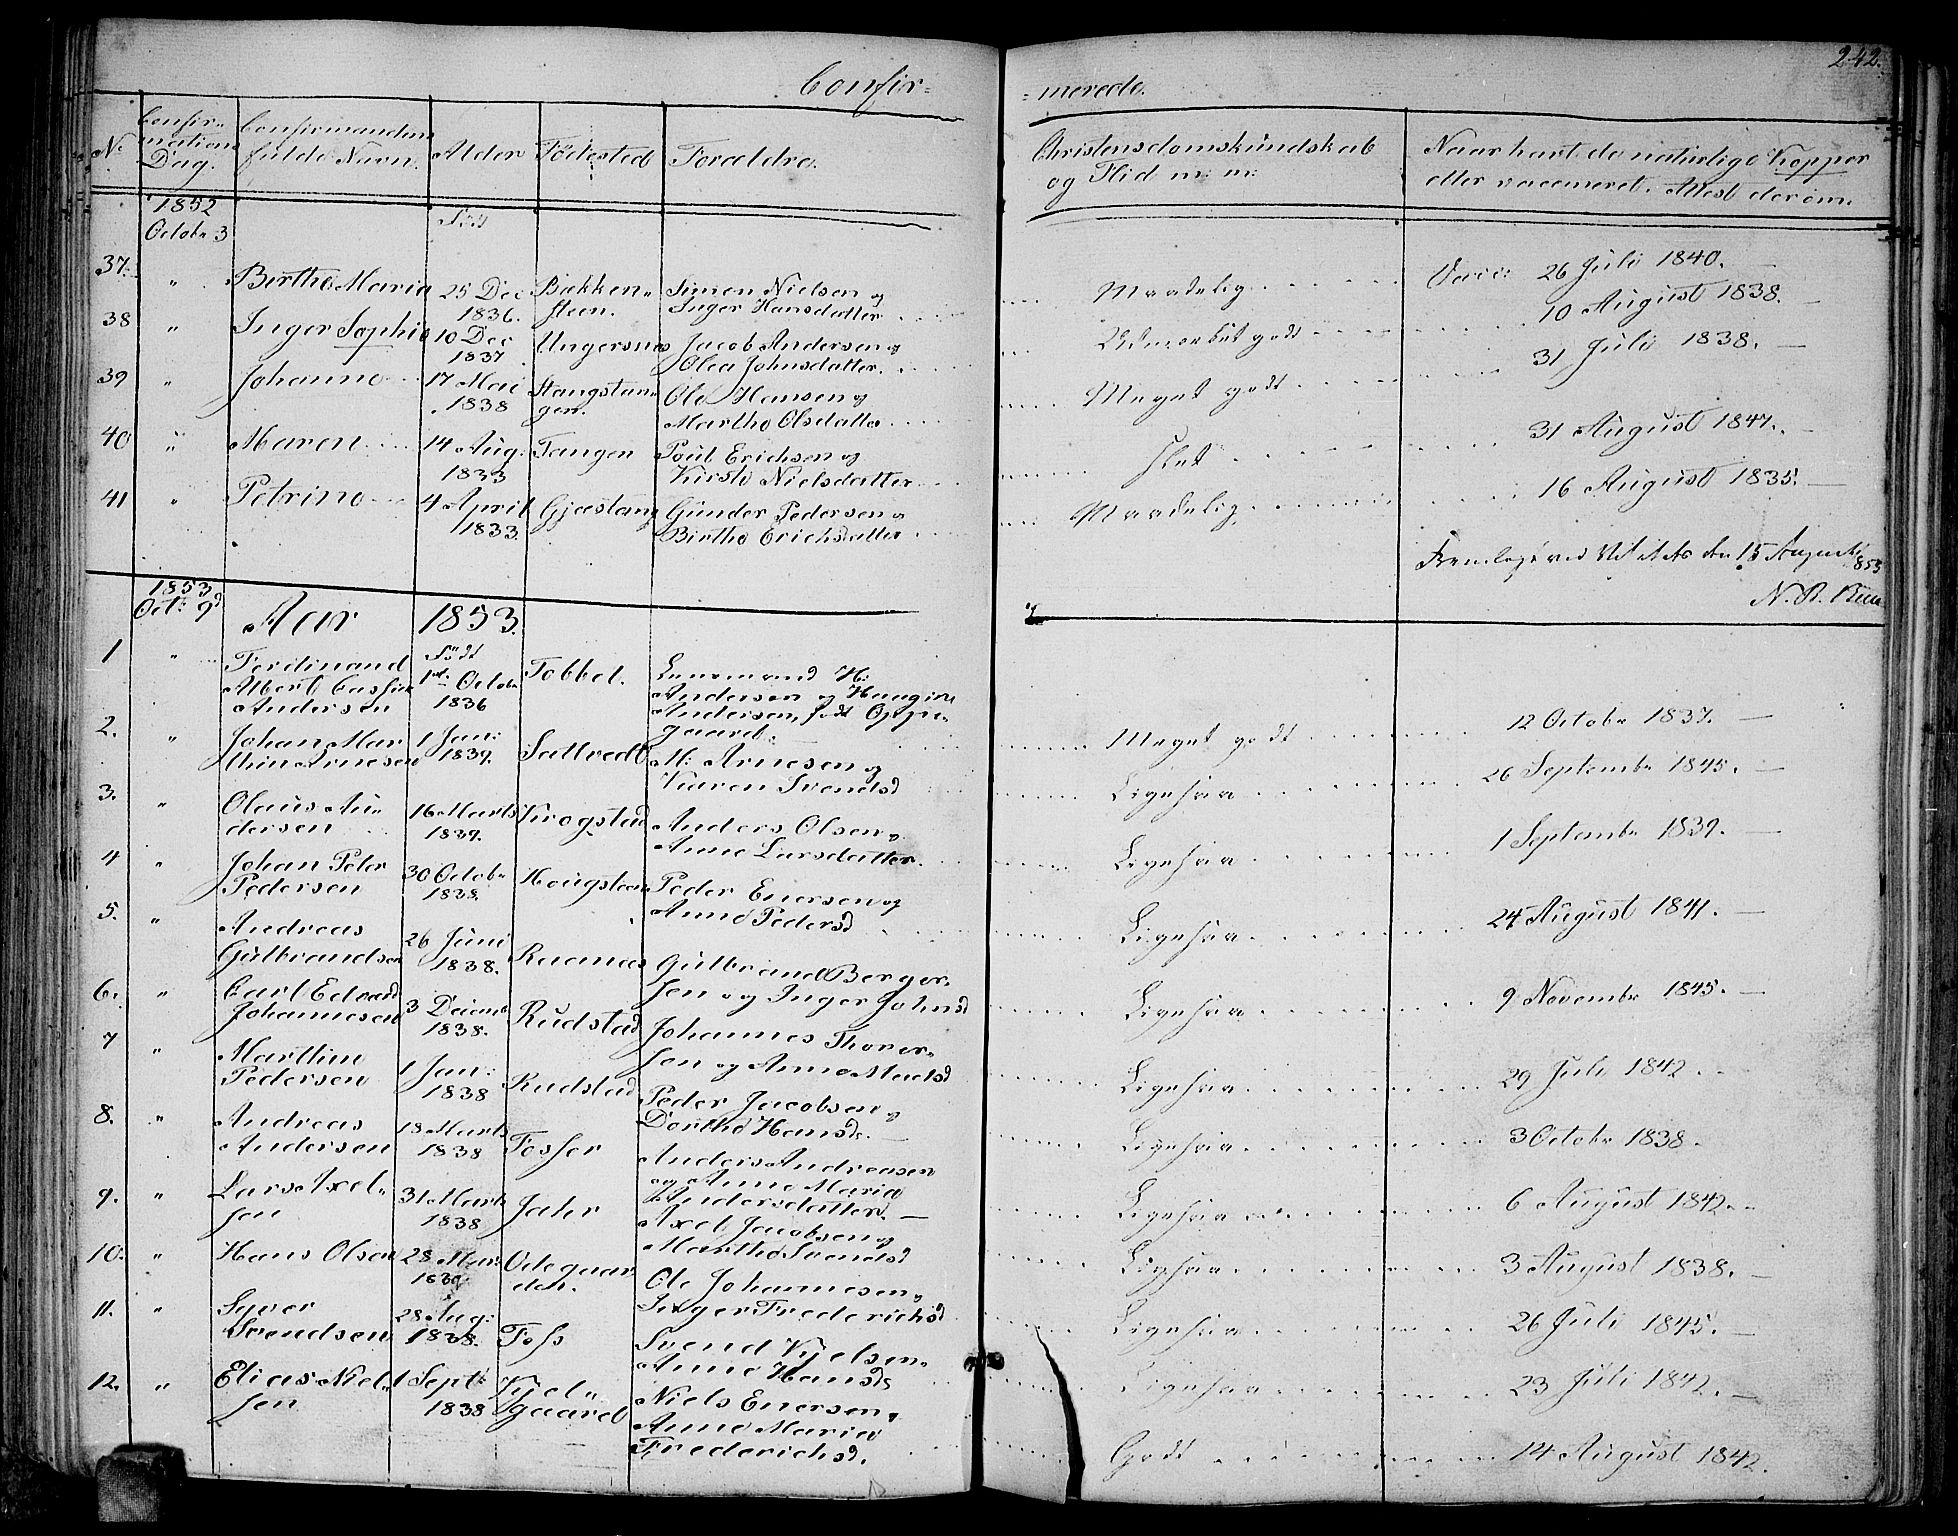 242.
Confir-
-merede.
N.
Confir-
mations
Dag.
Confirmandens
fulde Navn.
Alder
Födested
Forældre.
Christendomskundskab
og Flid m: m:
Naar havt de naturlige Kopper
eller vaccineret. Attest derom.
1852
Octobr 3
37. " Berthe Maria 25 Dec 1836. Bækkensteen. Simen Nielsen og
Inger Hansdatter
Maadelig Vacc: 26 Juli 1840.
38 " Inger Sophie 10 Dec 1837 Ungersnæs Jacob Andersen og
Olea Johnsdatter.
Udmærket godt 10 August 1838.
39 " Johanne 17 Mai 1838 Stangstangen. Ole Hansen og
Marthe Olsdatter
Meget godt 31 Juli 1838.
40 " Maren 14 Aug: 1833 Tangen Poul Erichsen og
Kirste Nielsdatter
slet 31 August 1847.
41 " Petrine 4 April 1833. Gjæstang Gunder Pedersen og
Birthe Erichsdatter
Maadelig 16 August 1835.
Fremlagt ved Visitats den 15 August 1853
N. R.
1853
Oct: 9d
Aar 1853.
Födt
1 " Ferdinand
Albert
Andersen
1st Octobr
1836
Tobbel.
Lensmand H:
Andersen og Haagine
Andersen, födt Oppegaard.
Meget godt 12 Octobr 1837.
2. " Johan Mar
thin Arnesen
1 Jan:
1839.
Sattvedt
M: Arnesen og
Karen Svendsd
Ligesaa 26 Septembr 1845.
3. " Olaus An
dersen
16 Marts
1839.
Krogstad
Anders Olsen og
Anne Larsdatter.
Ligesaa 1 Septembr 1839.
4 " Johan Peter
Pedersen
30 Octobr
1838.
Hougsteen
Peder Enersen og
Anne Pedersd
Ligesaa 24 August 1841.
5. " Andreas
Gulbrandsen
26 Juni
1838.
Ramnæs
Gulbrand Berger-
sen og Inger Johnsd
Ligesaa 9 Novembr 1845.
6. " Carl Edvard
Johannesen
3 Decemb
1838.
Rudstad
Johannes Thorer-
sen og Anne Madsd
Ligesaa 29 Juli 1842
7 " Marthin
Pedersen
1 Jan:
1838
Rudstad
Peder Jacobsen og
Dorthe Hansd.
Ligesaa 3 Octobr 1838.
8. " Andreas
Andersen
18 Marts
1838
Fosser
Anders Andreasen
og Anne Maria
Andersdatter.
Ligesaa 6 August 1842
9. " Lars Axel-
sen
31 Marts
1838
Jahr
Axel Jacobsen og
Marthe Svendsd
Ligesaa 3 August 1838.
10. " Hans Olsen
28 Mar
Ödegaar
den.
Ole Johannesen og
Inger Frederichsd
Ligesaa 26 Juli 1845.
11. " Syver
Svendsen
28 Aug:
1838.
Foss
Svend Kjelsen
Anne Hansd
Ligesaa 23 Juli 1842.
12. " Elias Niel-
sen
1 Septbr
1838
Kjel-
gaard
Niels Enersen og
Anne Maria
Frederichsd.
Godt 14 August 1842.